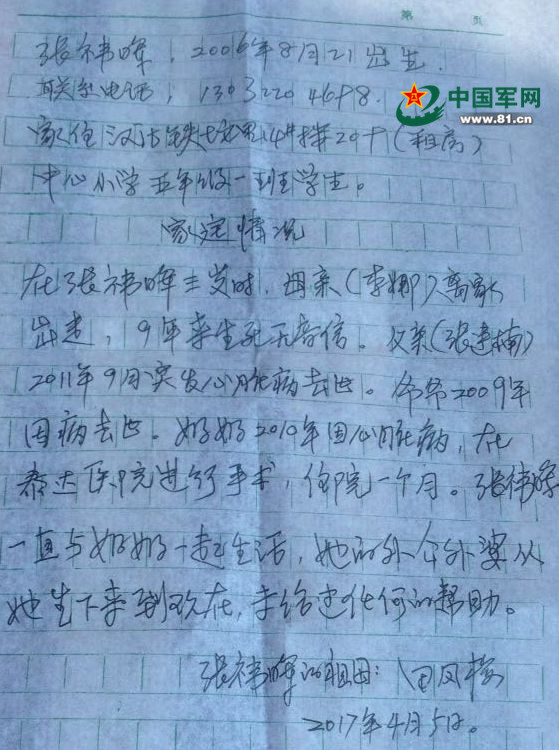 第 页
张祎晖：2006年8月21出生.
联系电话：13032204698.
中国军网
www.81.cn
家住汉沽铁坨里14#楼20#（租房）
中心小学五年级一班学生。
家庭情况
在张祎晖三岁时，母亲（李娜）离家
出走，9年来生死无音信。父亲（张建楠）
2011年9月突发心脏病去世。爷爷2009年
因病去世。奶奶2010年因心脏病，在
泰达医院进行手术，住院一个月。张祎晖
一直与奶奶一起生活，她的外公外婆从
她生下来到现在，未给过任何的帮助。
张祎晖的祖母：田凤
2017年4月5日。